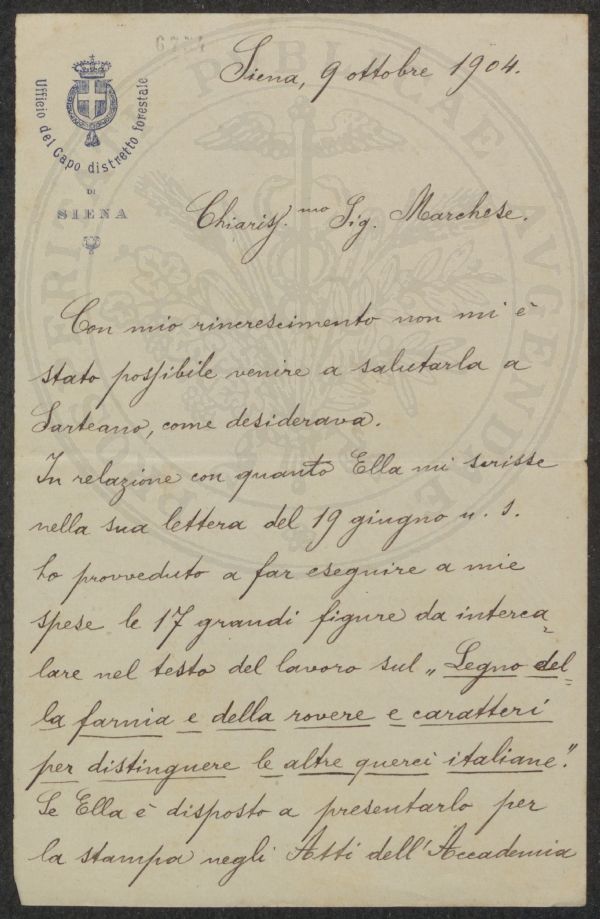 Siena, 9 ottobre 1904.
Ufficio del Capo distretto forestale
DI
SIENA
Chiariss.mo Sig. Marchese.
Con mio rincrescimento non mi è
stato possibile venire a salutarla a
Sarteano, come desiderava.
In relazione con quanto Ella mi scrisse
nella sua lettera del 19 giugno u. s.
ho provveduto a far eseguire a mie
spese le 17 grandi figure da interca-
lare nel testo del lavoro sul „Legno del=
la farnia e della rovere e caratteri
per distinguere le altre querci italiane".
Se Ella è disposto a presentarlo per
la stampa negli Atti dell'Accademia